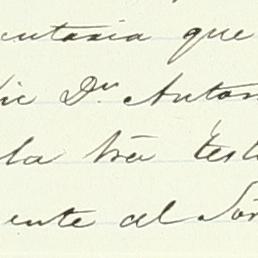 entaria que
lic Dn Anton
la tra Test
ente al Sor